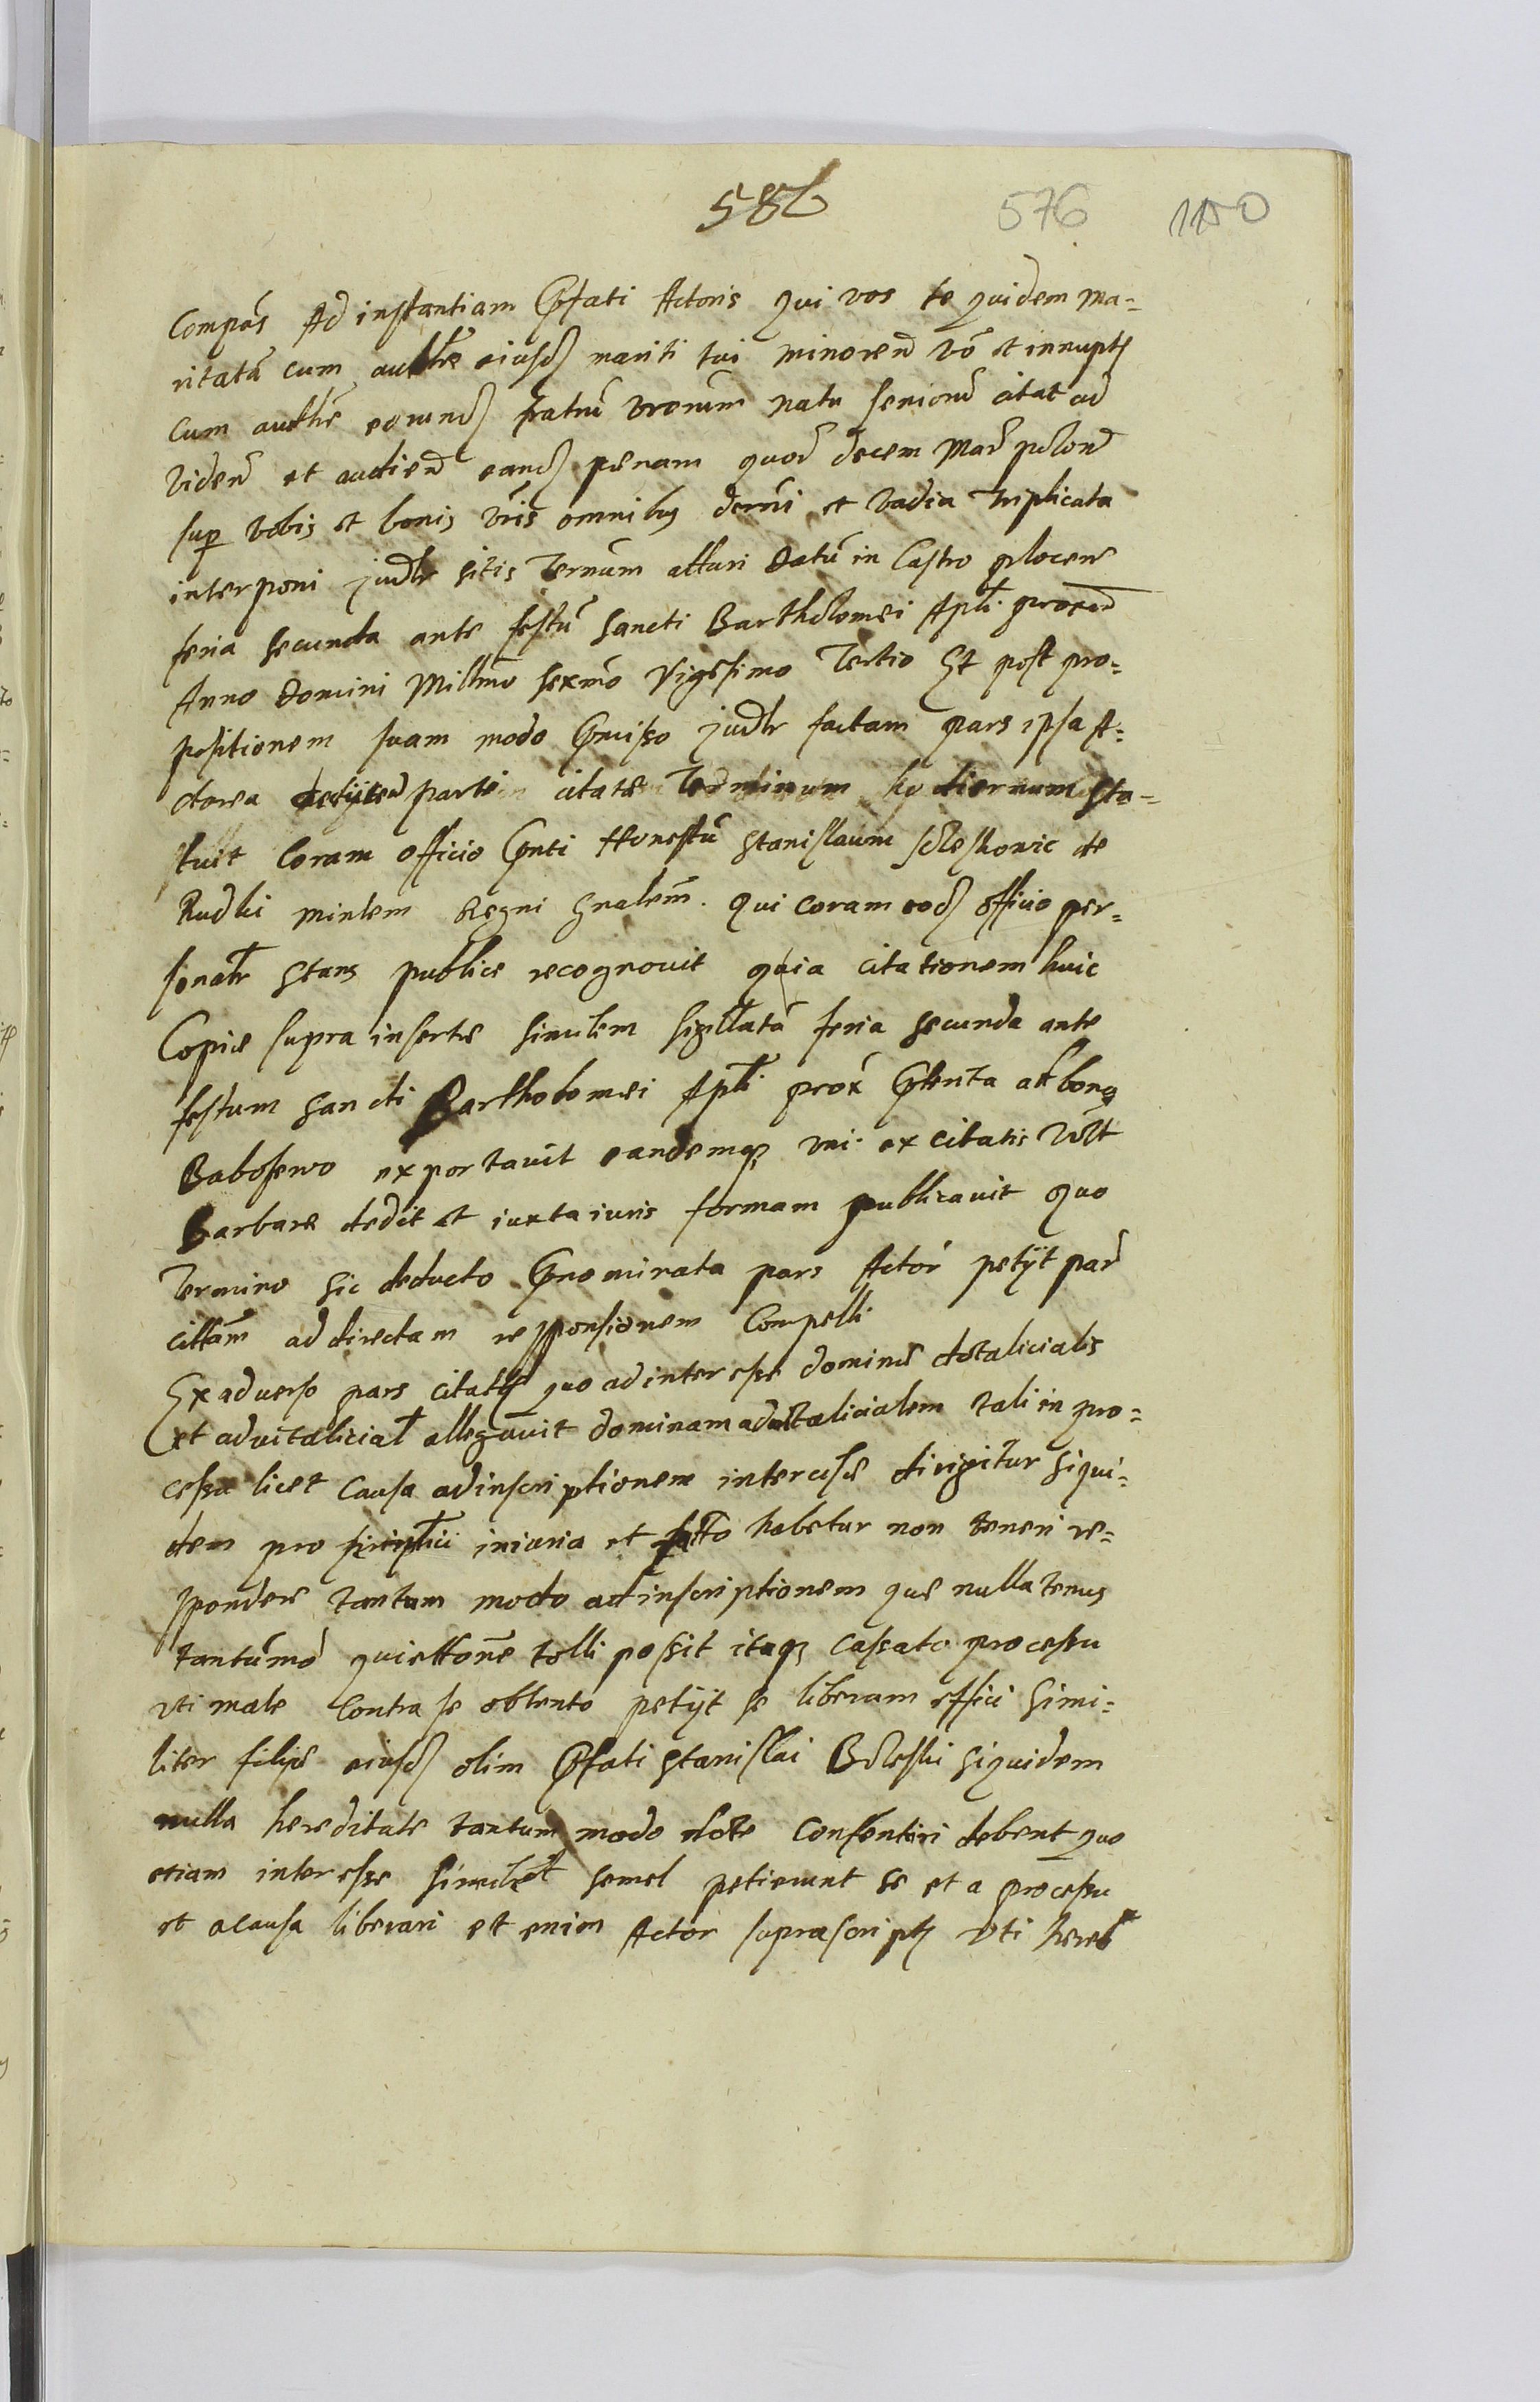 586 576 1150
Compás Ad instantiam Pfati Actoris qui vos te quidem ma-
ritatá cum aucthte eiusd mariti tui minorend vó et innupt
cum aucthe eorund fratrú vrorum natu seniorú citat ad
Vidend et audiend eand penam quod decem Mar polond
sup vobis et bonis vris omnibus decrni et vadia triplicata
interponi judlr sitis Ternúm attúri Datú in Castro plocens
feria secunda ante festú Sancti Bartholomei Apli proxd
Anno Domini Millmo sexmo Vigesimo Tertio Et post pro-
positionem suam modo Pmisso judlr factam pars ipsa A-
ctorea parti citatæ Terminum hodiernum sta-
tuit Coram officio Pnti Honestú Stanislaum Soleskowic de
Rudki mintem Regni Gnalem. Qui coram eod officio per-
sonalr stans publice recognouit quia citationem huic
Copiæ supra insertæ similem sigillatá feria secunda ante
festum Sancti Bartholomei Apli prox Pterita at bona
Babosewo exportauit eandemq vni ex citatis vélt
Barbaræ dedit et iuxta iuris formam publicauit quo
Termino sic deducto Pnominata pars Actor petÿt par
cittám ad directam responsionem Compelli
Ex aduerso pars citata quo ad interesse dominæ dotalicialis
et aduitalicial allegauit dominam aduitalicialem tali in pro-
cessu licet Causa ad inscriptionem intercisæ dirigitur siqui-
dem pro simplici iniuria et facto habetur non teneri re-
spondere tantum modo ad inscriptionem quæ nullatenus
tantúmo quiettone tolli possit itaq cassato processu
vti male Contra se obtento petÿt se liberam effici simi-
liter filiæ eiusd olim Pfati Stanislai Boleski siquidem
nulla hereditate tantum modo dote Contentiri debent quo
etiam interesse simulet semel petierunt se et a processu
et a causa liberari et enim Actor suprascript vti heres